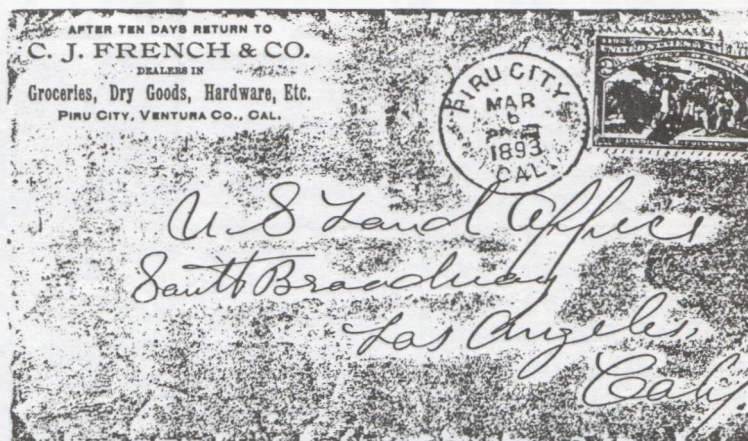 AFTER TEN DAYS RETURN TO
C. J. FRENCH & CO.
DEALERS IN
Groceries, Dry Goods, Hardware, Etc.
PIRU CITY, VENTURA CO., CAL.
PIRU CITY
MAR
6
1893
CAL.
UNITED STATES
2
U S Land Office
South Broadway
Los Angeles,